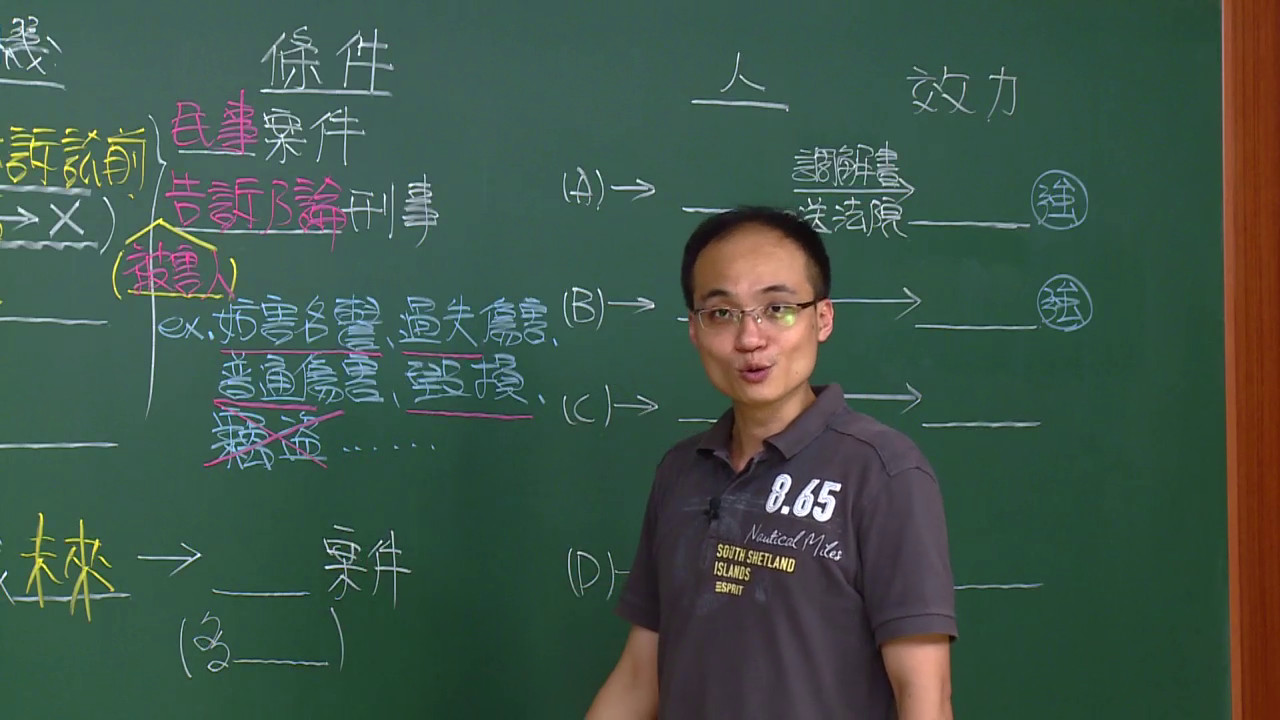 機
條件
人
效力
訴訟前
民事案件
告訴乃論刑事
→ X)
(被害人)
(A)→
調解書
送法院
強
ex. 妨害名譽、過失傷害、
普通傷害、毀損、
竊盜……
(B)→
→
強
(C)→
→
未來 → ____ 案件
(多____)
(D)
8.65
Nautical Miles
SOUTH SHETLAND
ISLANDS
ESPRIT